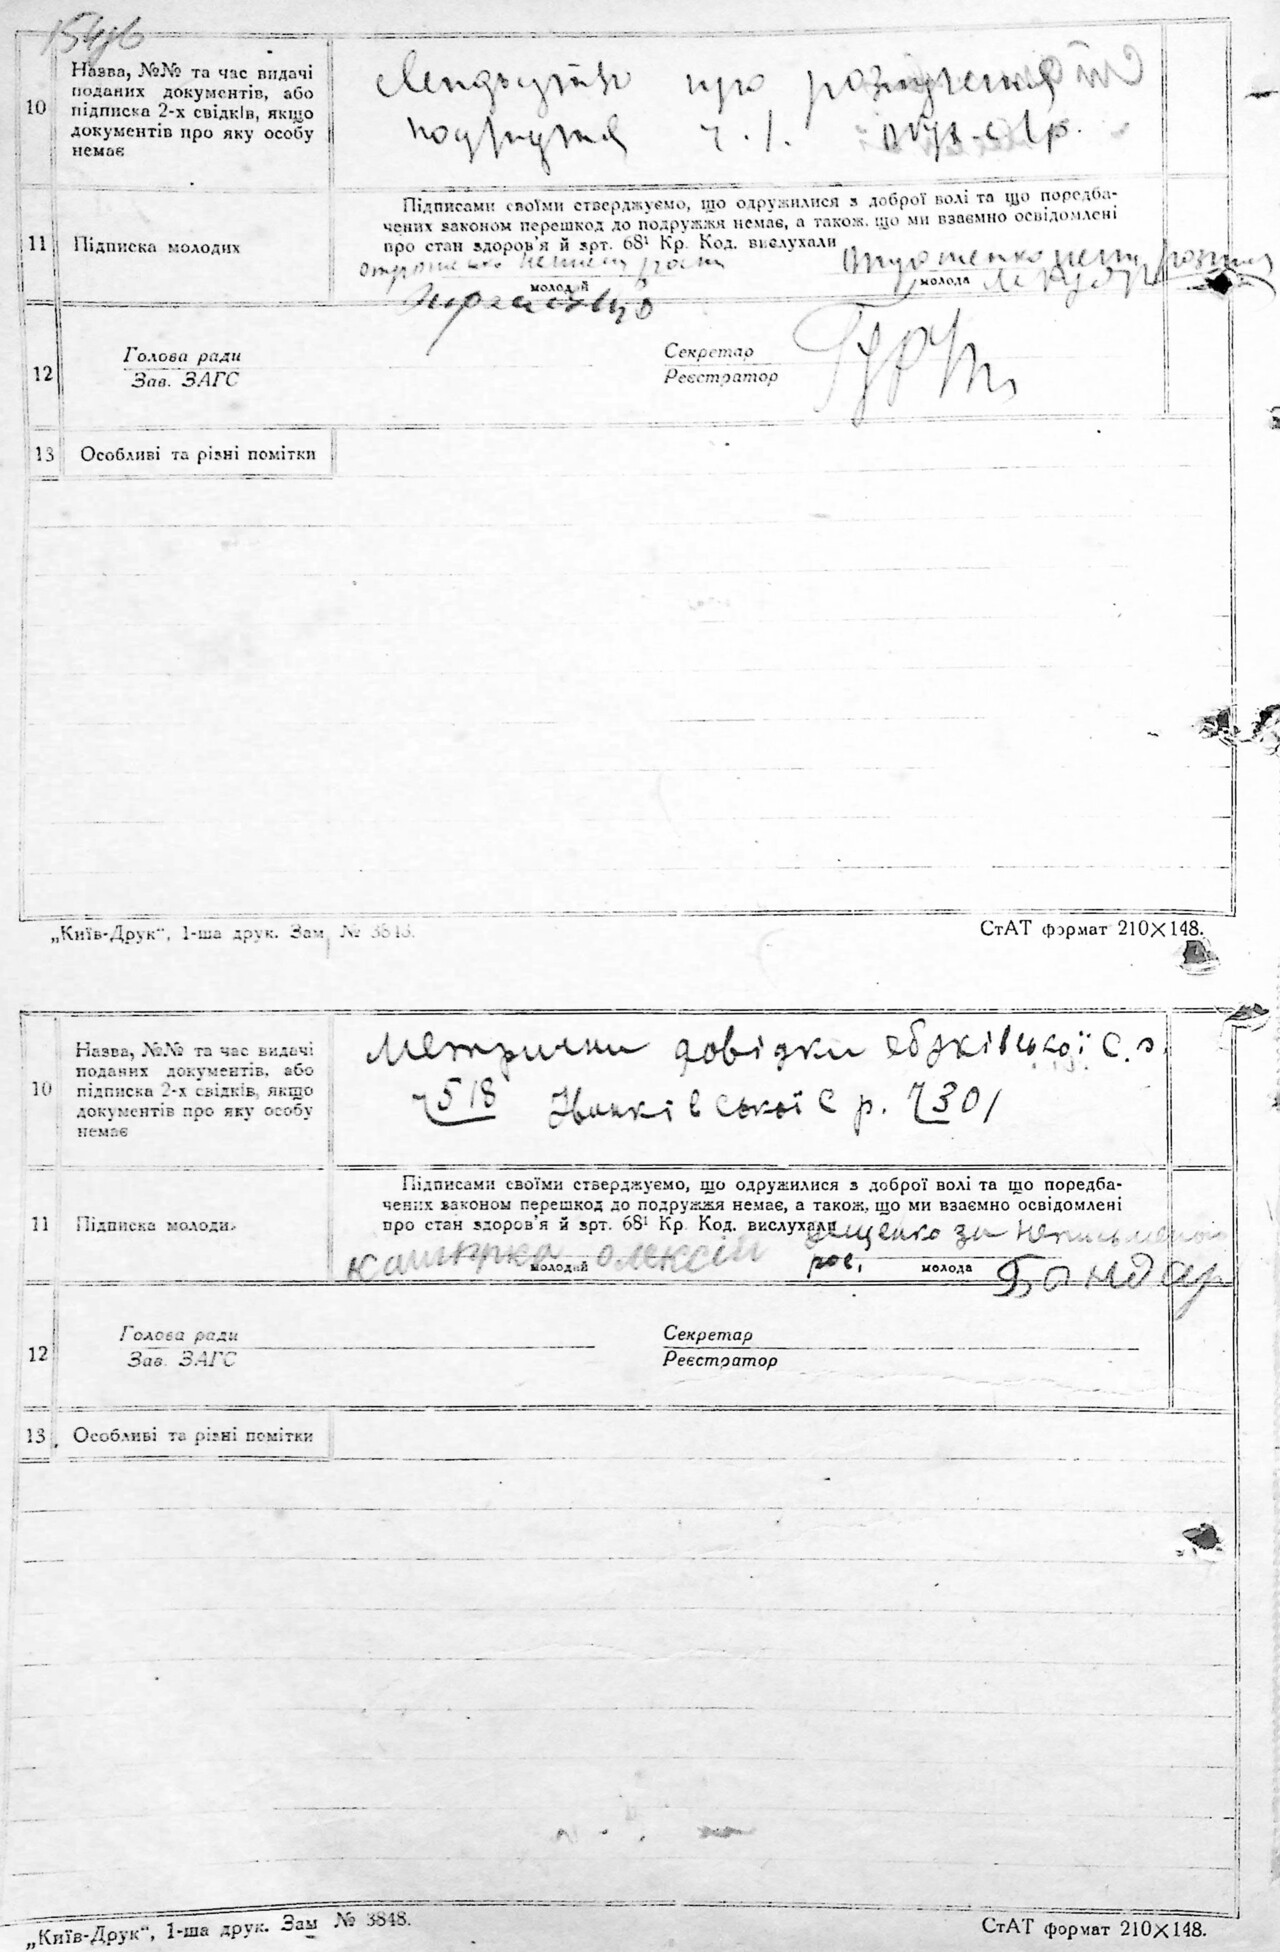 154зв
10
Назва, №№ та час видачі
поданих документів, або
підписка 2-х свідків, якщо
документів про яку особу
немає
про
подружжя ч. 1.
11
Підписка молодих
Підписами своїми стверджуємо, що одружилися з доброї волі та що поредба-
чених законом перешкод до подружжя немає, а також, що ми взаємно освідомлені
про стан здоров'я й зрт. 68¹ Кр. Код. вислухали
молодий
молода
12
Голова ради
Зав. ЗАГС
Секретар
Реєстратор
13
Особливі та різні помітки
„Київ-Друк“, 1-ша друк. Зам. № 3848.
СтАТ формат 210×148.
10
Назва, №№ та час видачі
поданих документів, або
підписка 2-х свідків, якщо
документів про яку особу
немає
Метрични довідки с.р.
ч 518 Іванківської с р. ч 301
11
Підписка молодих
Підписами своїми стверджуємо, що одружилися з доброї волі та що поредба-
чених законом перешкод до подружжя немає, а також, що ми взаємно освідомлені
про стан здоров'я й зрт. 68¹ Кр. Код. вислухали
за неписьменою
олексій
рос.
Бондар
молодий
молода
12
Голова ради
Зав. ЗАГС
Секретар
Реєстратор
13
Особливі та різні помітки
„Київ-Друк“, 1-ша друк. Зам № 3848.
СтАТ формат 210×148.